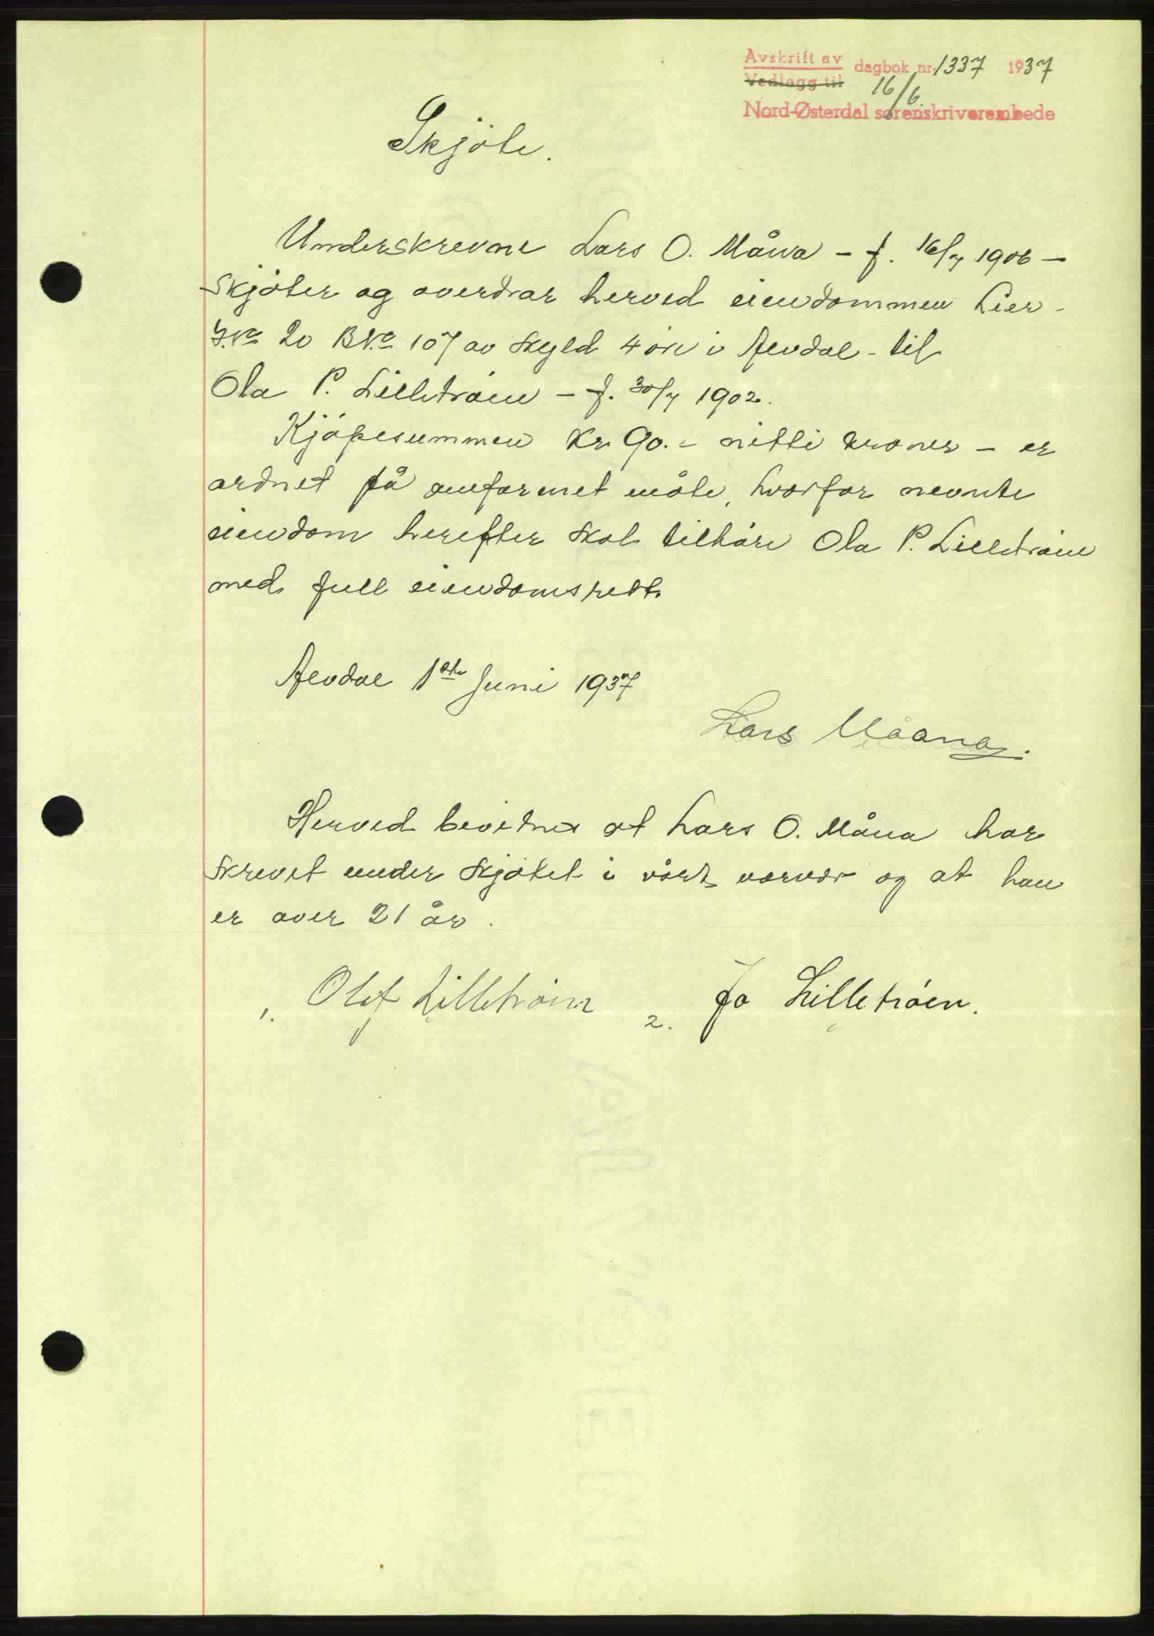 Avskrift av
Vedlegg til
dagbok nr. 1337 1937
16/6
Nord-Østerdal sorenskriverembede
Skjöte.
Underskrevne Lars O. Måna – f. 16/7 1906 –
skjöter og overdrar herved eiendommen Lier -
G.No 20 B.No 107 av skyld 4 öre i Alvdal - til
Ola P. Lilletröen – f. 30/7 1902.
Kjöpesummen Kr. 90.- nitti kroner – er
ordnet på omforenet måte, hvorfor nevnte
eiendom herefter skal tilhöre Ola P. Lilletröen
med full eiendomsrett.
Alvdal 1ste Juni 1937
Lars Måana.
Herved bevitnes at Lars O. Måna har
skrevet under skjötet i vårt nærvær og at han
er over 21 år.
1. Olaf Lilletröen 2. Jo Lilletröen.